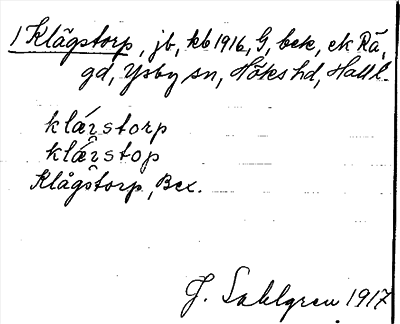 1 Klågstorp, jb, kb 1916, G, bek, ek Rå,
gd, Ysby sn, Höks hd, Hall l.
klárstorp
klárstop
Klågstorp, Bex.
J. Sahlgren 1917